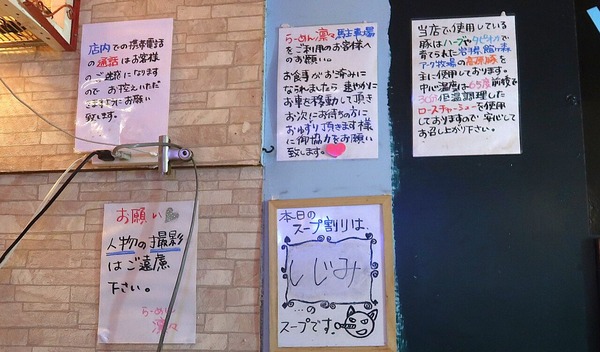 店内での携帯電話
の通話はお客様
のご迷惑になります
ので お控えいただ
きますようにお願い
致します。
らーめん凛々 駐車場
をご利用のお客様へ
のお願い。
お食事がお済みに
なられましたら 速やかに
お車を移動して頂き
お次にお待ちの方に
おゆずり頂きます様
に御協力をお願い
致します。
当店で、使用している
豚はハーブや
育てられた岩手県、館ヶ森
アーク牧場の高原豚を
主に使用しております。
中心温度は65度前後で
30分低温調理した
ローストチャーシューを使用
しておりますので、安心して
お召し上がり下さい。
お願い
人物の撮影
はご遠慮
下さい。
らーめん
凛々
本日の
スープ割りは、
しじみ
…の
スープです。